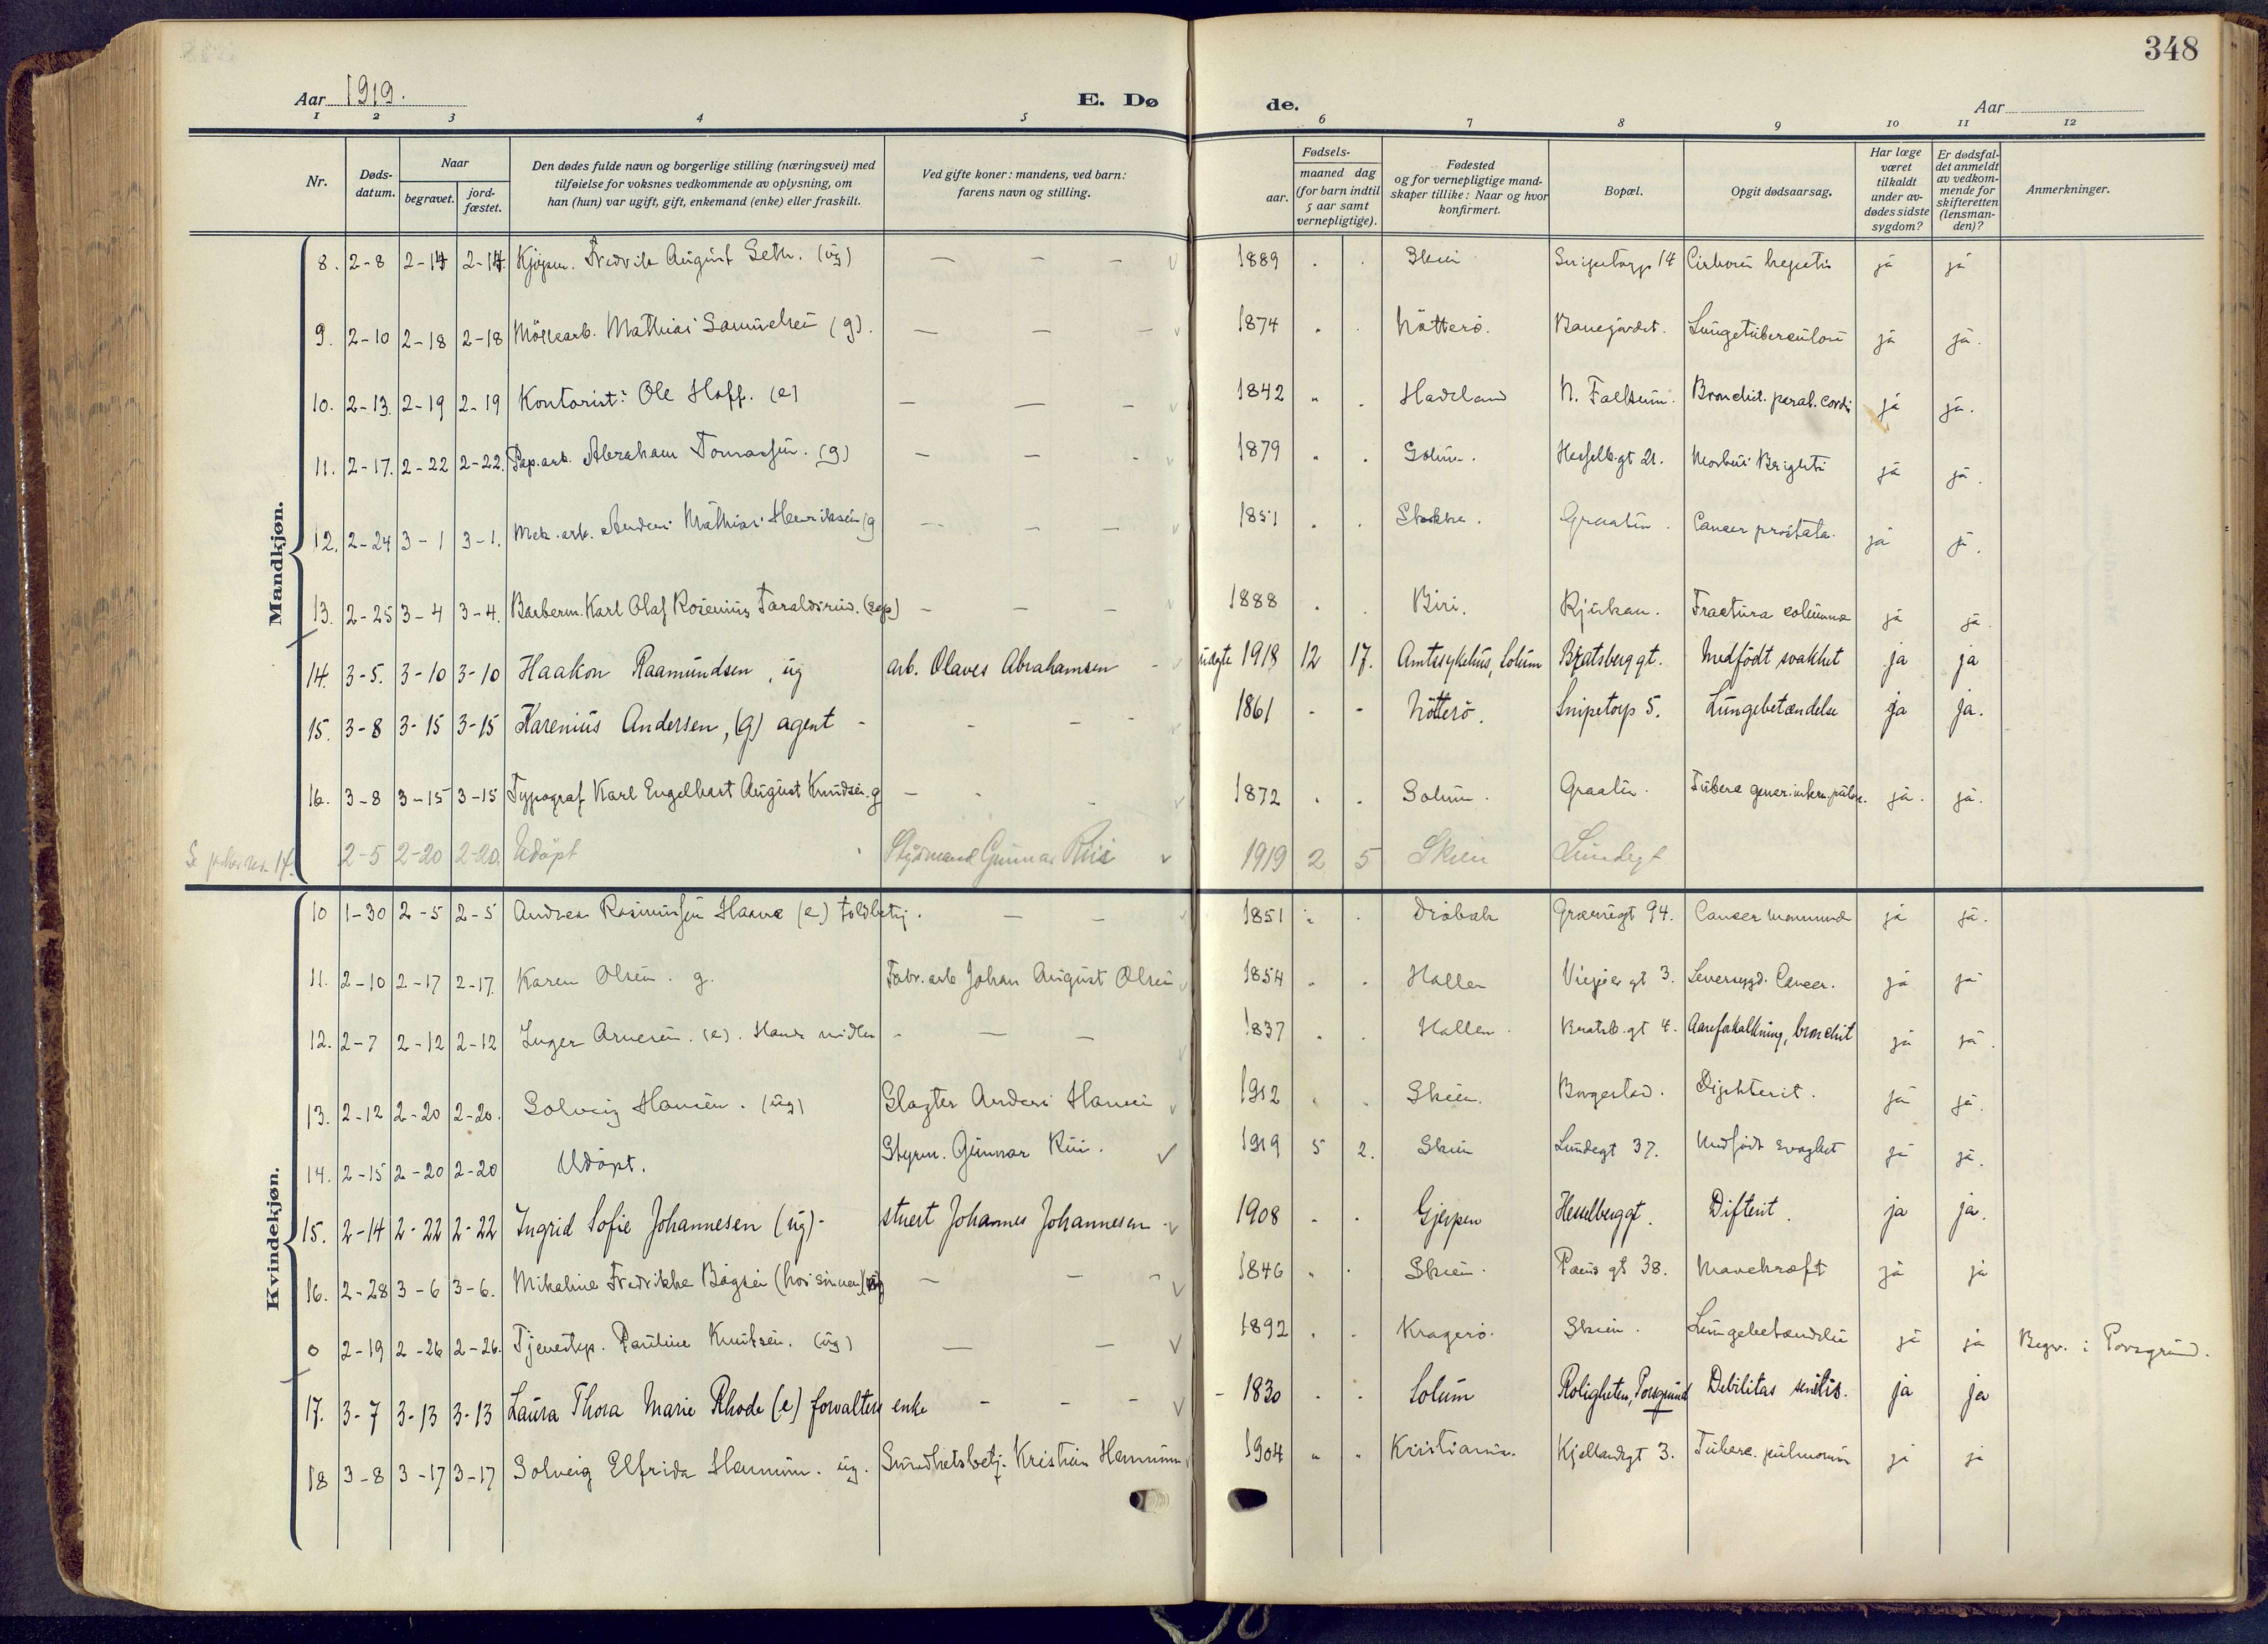 348
Aar 1919.
E. Dø de.
Aar
1 2 3 4 5 6 7 8 9 10 11 12
Nr.
Døds-datum.
Naar
begravet.
jord-fæstet.
Den dødes fulde navn og borgerlige stilling (næringsvei) med
tilføielse for voksnes vedkommende av oplysning, om
han (hun) var ugift, gift, enkemand (enke) eller fraskilt.
Ved gifte koner: mandens, ved barn:
farens navn og stilling.
Fødsels-
aar.
maaned dag
(for barn indtil
5 aar samt
vernepligtige).
Fødested
og for vernepligtige mand-
skaper tillike: Naar og hvor
konfirmert.
Bopæl.
Opgit dødsaarsag.
Har læge
været
tilkaldt
under av-
dødes sidste
sygdom?
Er dødsfal-
det anmeldt
av vedkom-
mende for
skifteretten
(lensman-
den)?
Anmerkninger.
Mandkjøn.
8. 2-8 2-14 2-14 Kjøpm. Fredrik August Seth. (ug) — — — 1889 Skien Snipetorp 14 Cirhosis hepatis ja ja
9. 2-10 2-18 2-18 Møllearb. Mathias Samuelsen (g). — — — 1874 Nøtterø. Banegaardst. Lungetuberculose ja ja.
10. 2-13. 2-19 2-19 Kontorist: Ole Hoff. (e) — — — 1842 Hadeland N. Falkum. Bronchit. paral. cordis ja ja.
11. 2-17. 2-22 2-22. Pap.arb. Abraham Tomassen. (g) — — 1879 Solum. Hesselb.gt 21. Morbus Brighti ja ja.
12. 2-24 3-1 3-1. Mek. arb. Anders Mathias Henriksen (g — — — 1851 Stokke. Graaten. Cancer prostata. ja ja.
13. 2-25 3-4 3-4. Barberm. Karl Olaf Rosenius Taraldsrud. — — — 1888 Biri. Rjukan. Fractura columna ja ja.
14. 3-5. 3-10 3-10 Haakon Raamundsen, ug arb. Olaves Abrahamsen - uegte 1918 12 17. Amtssykehus, Solum Bratsberggt. Medfødt svakhet ja ja
15. 3-8 3-15 3-15 Karenius Andersen, (g) agent - - - - 1861 - - Nøtterø. Snipetorp 5. Lungebetændelse ja ja.
16. 3-8 3-15 3-15 Typograf Karl Engelhart August Knudsen. g — - - 1872 Solum. Graaten. ja. ja.
2-5 2-20 2-20. Udøpt Gunnar Riis 1919 2 5 Skien Lundegt
Kvindekjøn.
10 1-30 2-5 2-5 Andrea Rasmussen Haave (e) toldbetj. — — 1851 Drøbak 94. Cancer mamma ja ja.
11. 2-10 2-17 2-17. Karen Olsen. g. Fabr. arb Johan August Olsen 1854 Holla gt 3. Leversygd. Cancer. ja ja
12. 2-7 2-12 2-12 Inger Arnesen. (e). - — — 1837 Holla. Bratsb.gt 4. Aareforkalkning, bronchit ja ja.
13. 2-12 2-20 2-20. Solveig Hansen. (ug) Slagter Anders Hansen 1912 Skien. Borgestad. Diphterit. ja ja.
14. 2-15 2-20 2-20 Udøpt. Styrm. Gunnar Riis. 1919 5 2. Skien Lundegt 37. Medfødt svaghet ja ja.
15. 2-14 2-22 2-22 Ingrid Sofie Johannesen (ug)- stuert Johannes Johannesen - 1908 - - Gjerpen Hesselberggt. Difterit. ja ja.
16. 2-28 3-6 3-6. Mikaline Fredrikke Bøgsei — — - 1846 Skien. Paus gt 38. Mavekræft ja ja
0 2-19 2-26 2-26. Tjenestep. Pauline Knutsen. (ug) — — 1892 Kragerø. Skien. Lungebetændelse ja ja Begr. i Porsgrund.
17. 3-7 3-13 3-13 Laura Thora Marie Rhode (e) forvalters enke - - - 1830 Solum Roligheten, Porsgrund Debilitas senilis. ja ja
18 3-8 3-17 3-17 Solveig Elfrida Hannum. ug. Sundhetsbetj. Kristian Hannum 1904 Kristiania. Kjellandsgt 3. Tuberc. pulmonum ja ja